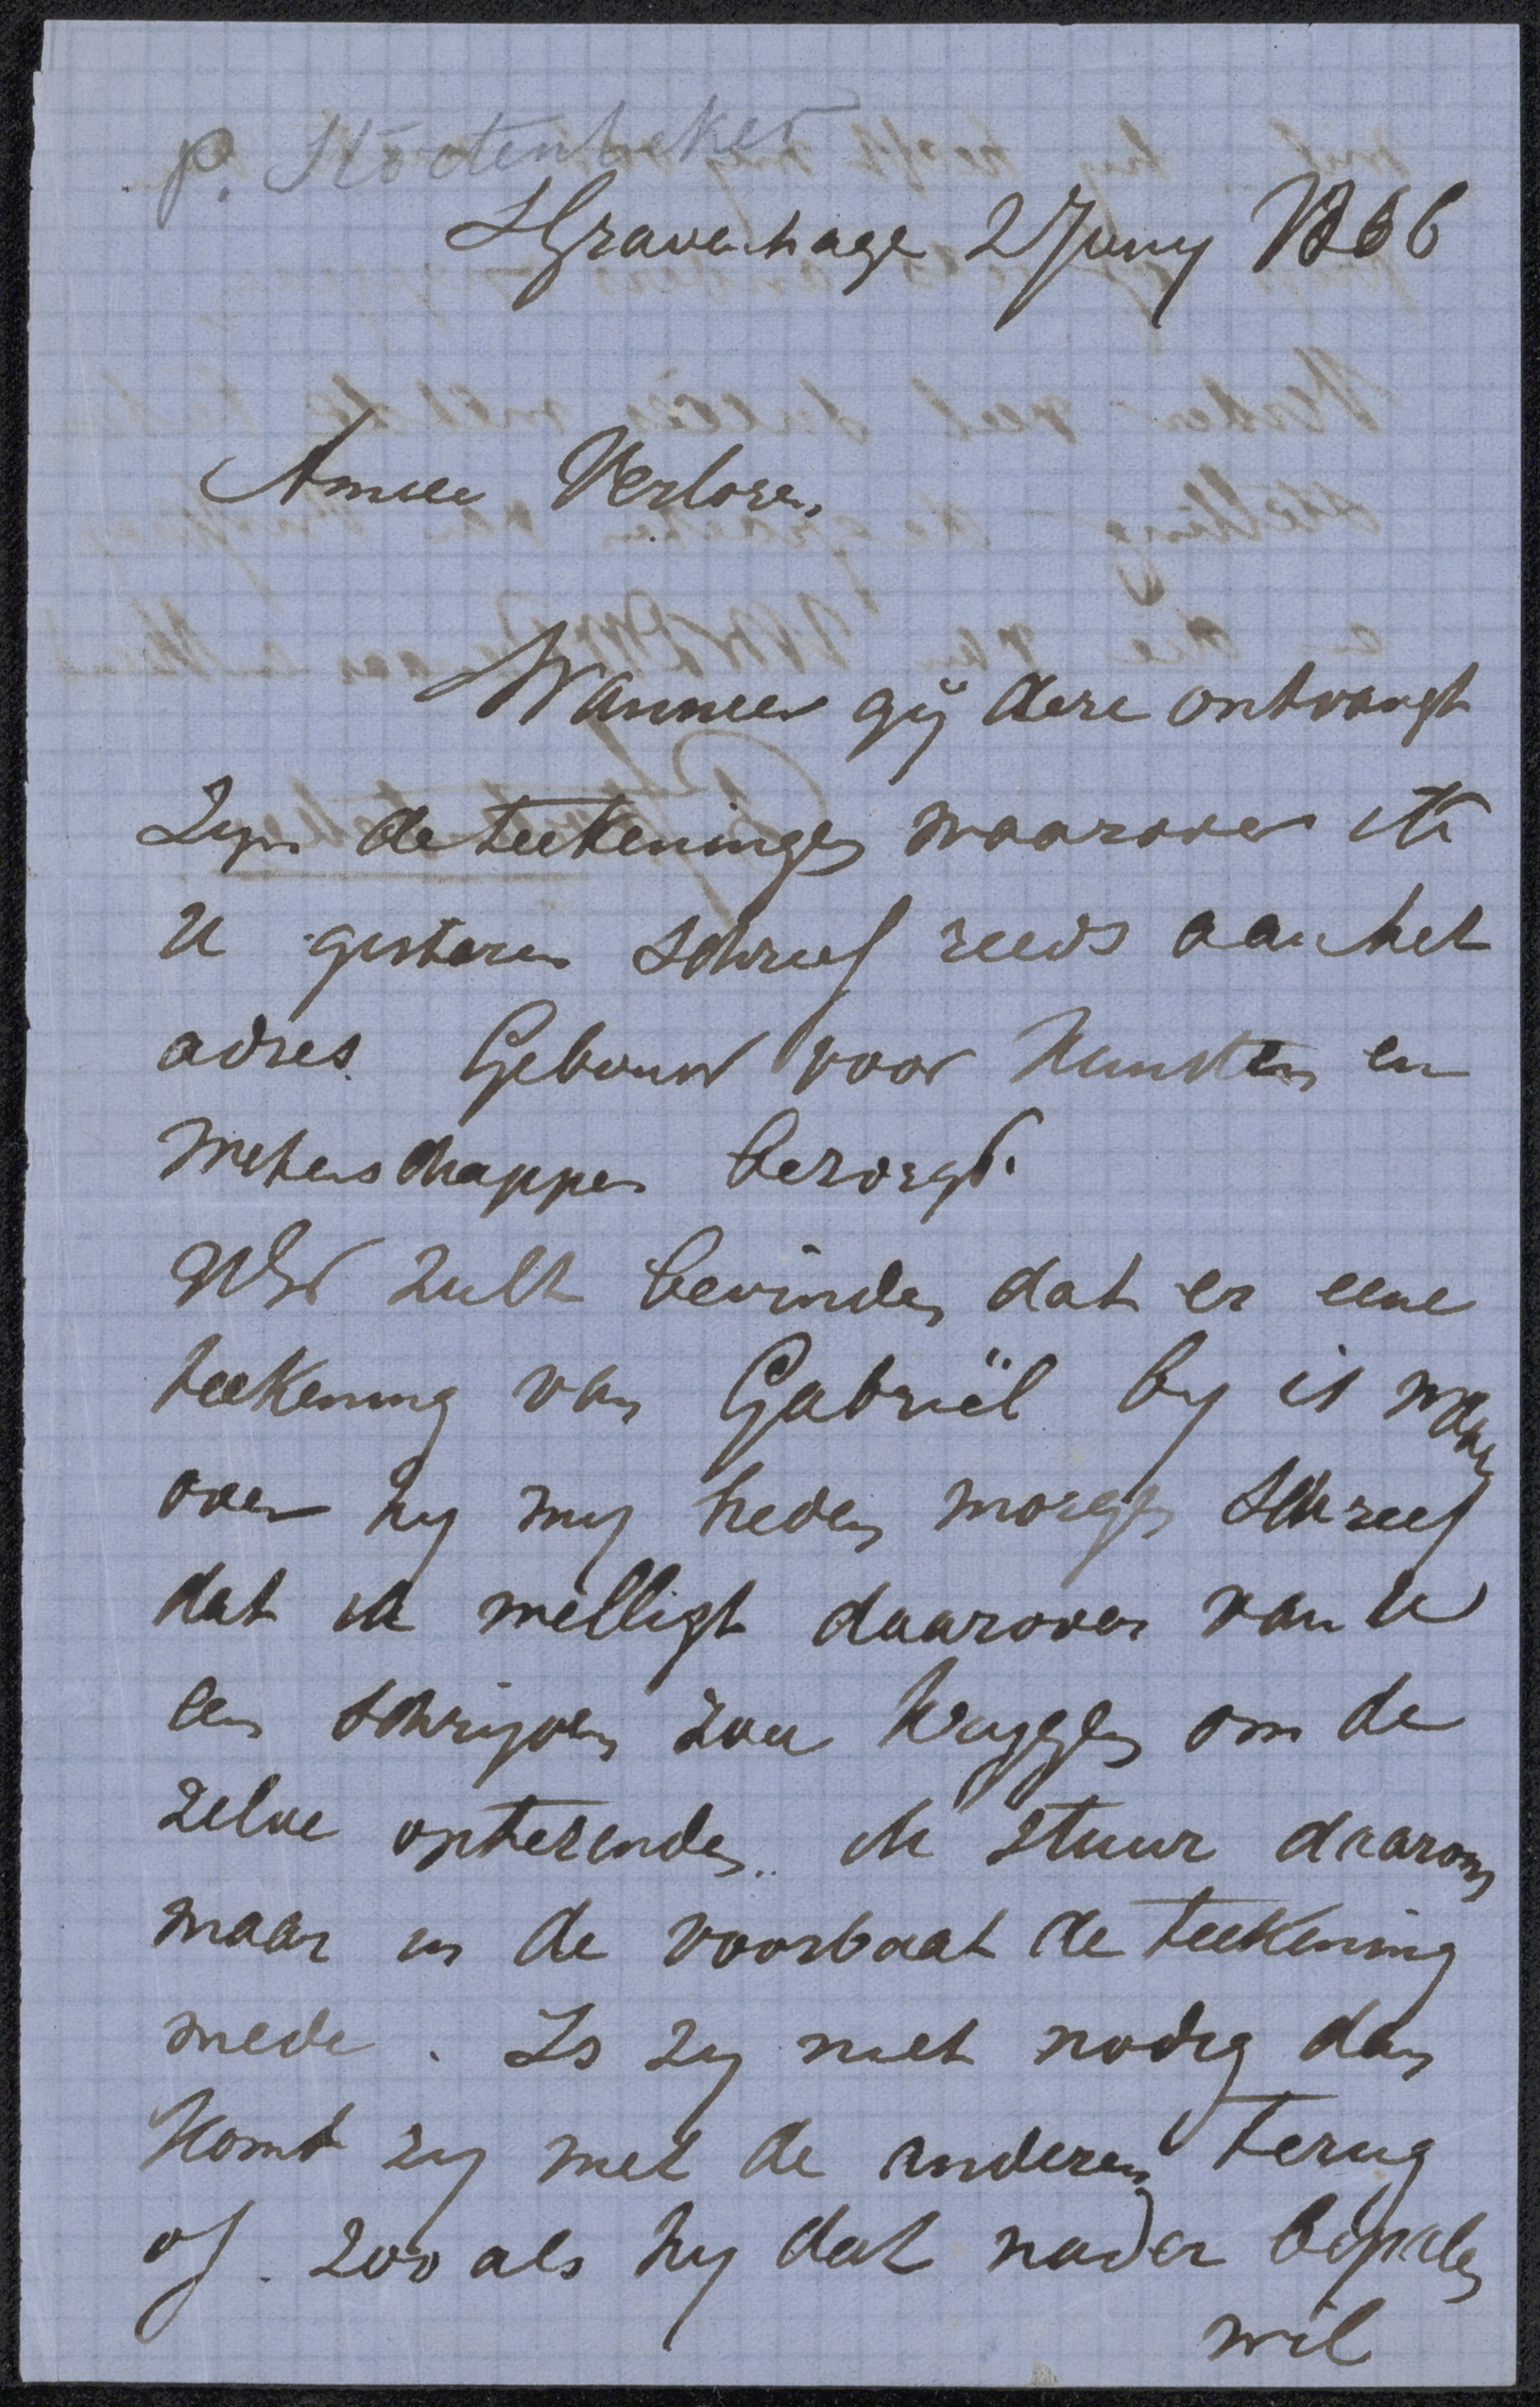 P. Stortenbeker
SGravenhage 2 Juny 1866
Amice Verloren,
Wanneer gÿ deze ontvangt
Zyn de teekeningen waarover ik
U gisteren schreef reeds aan het
adres Gebouw voor Kunsten en
Wetenschappen bezorgd.
zult bevinden dat er eene
teekening van Gabriël by is waar
over hy my heden morgen schreef
dat ik welligt daarover van U
een schrijven zou krygen om de
zelve optezenden. ik stuur daarom
maar in de voorbaat de teekening
mede. Is zy niet nodig dan
Komt zy met de anderen terug
of zoo als hy dat nader bepalen
wil